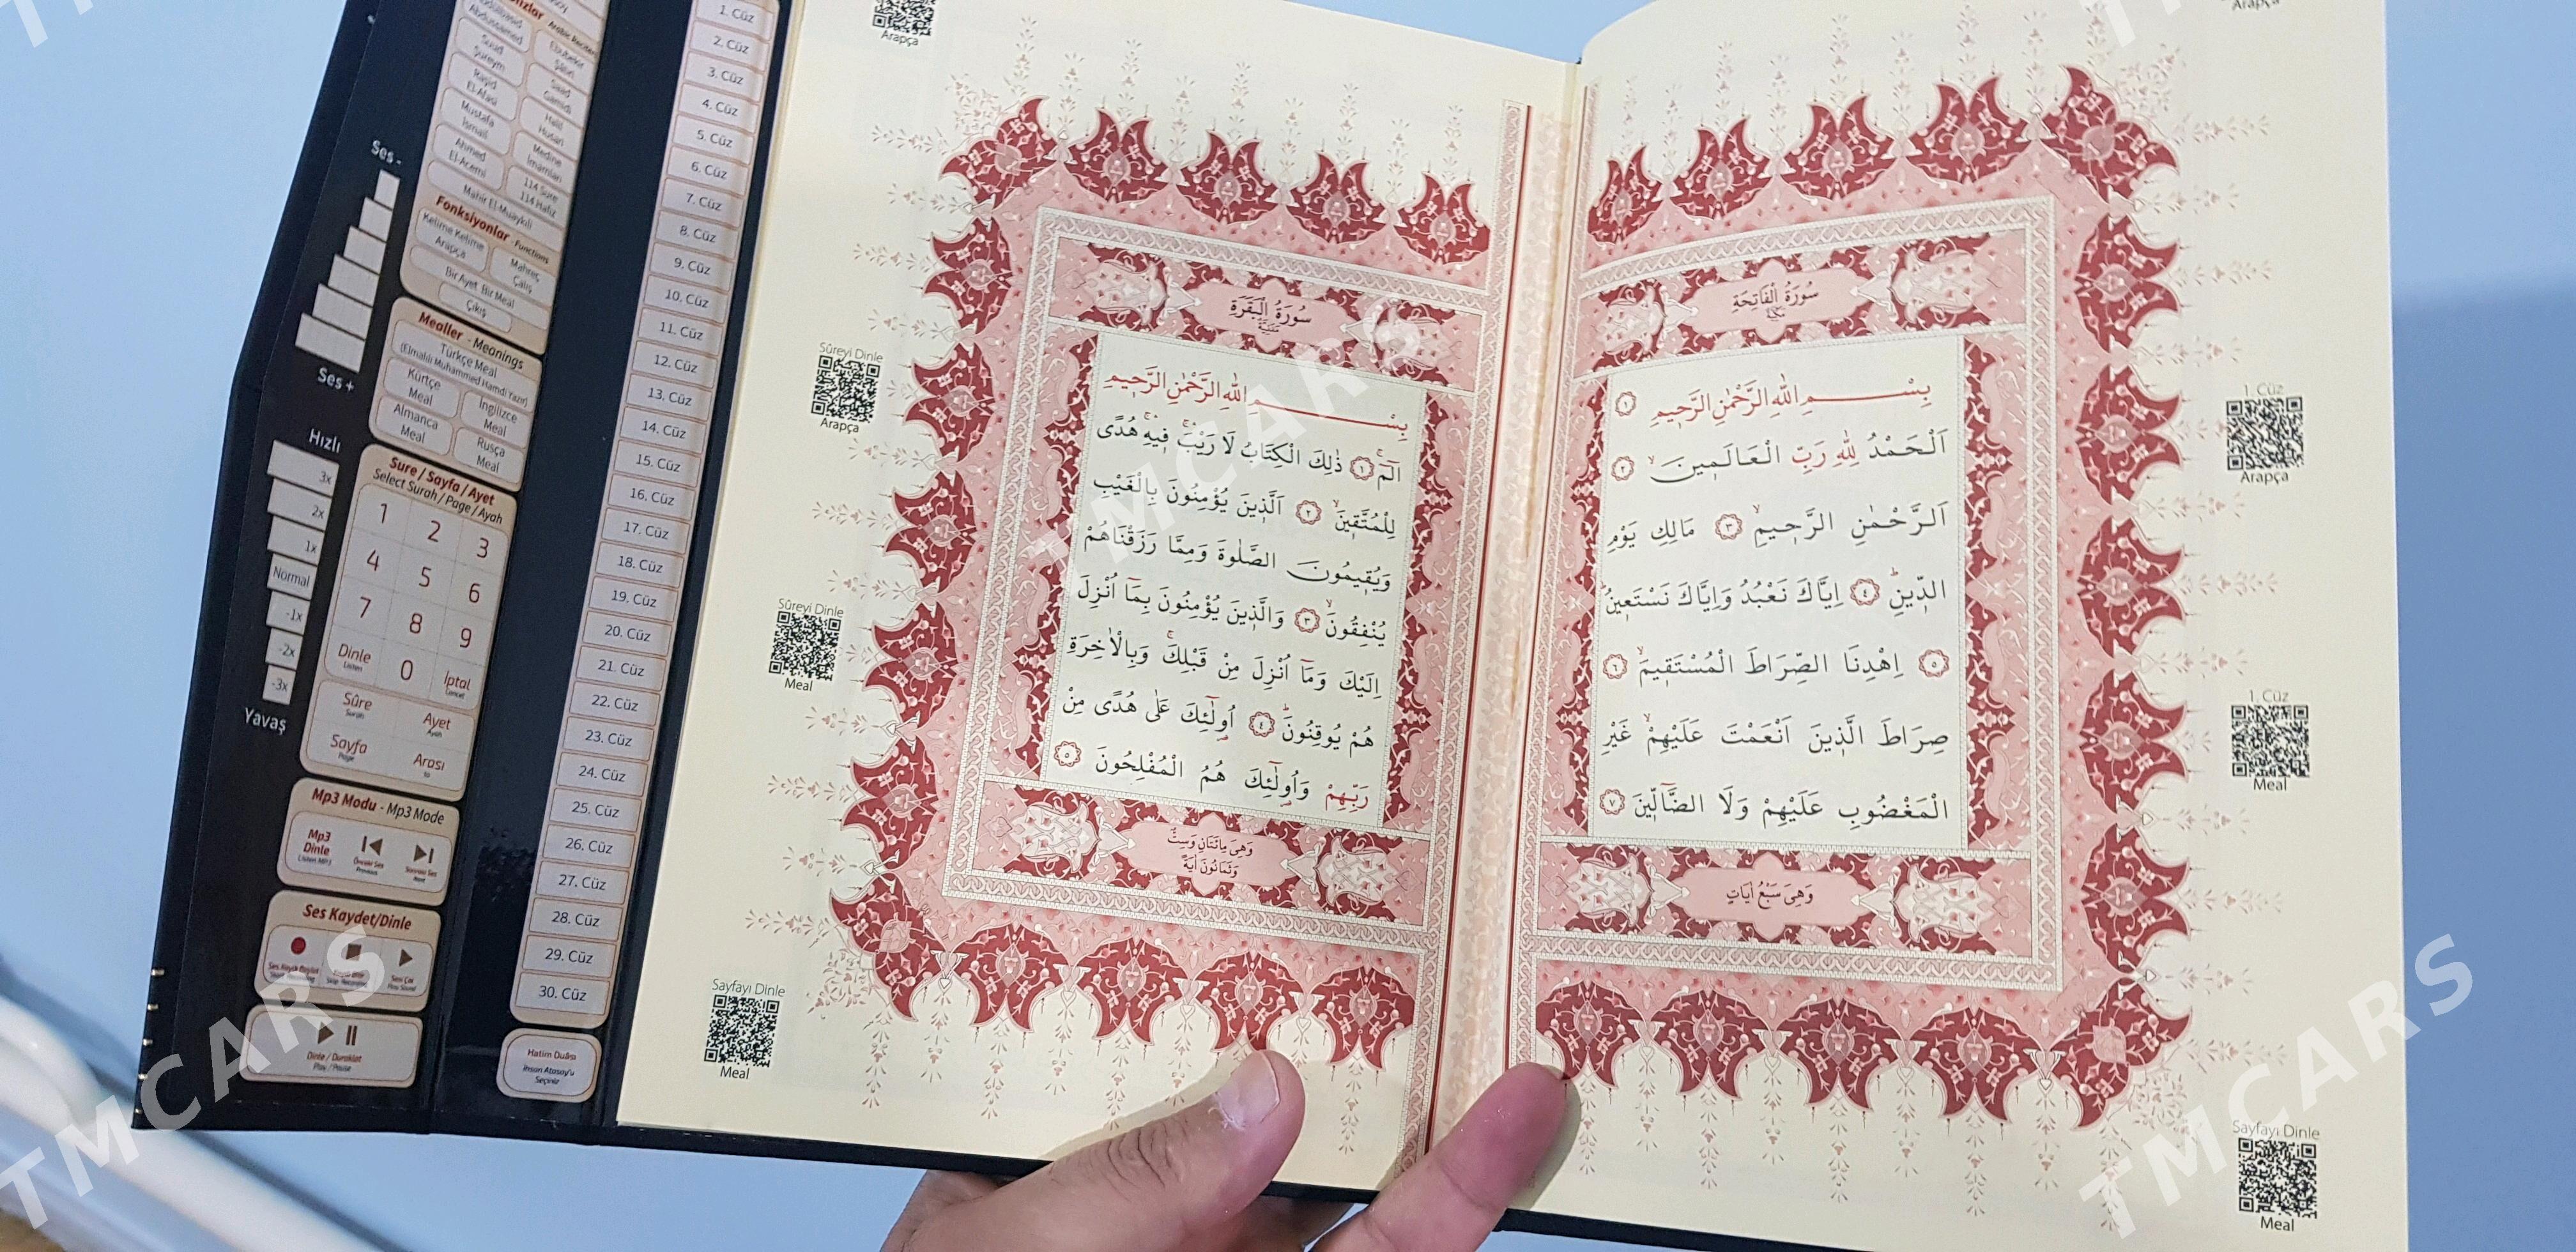 Arabic Reciters
Suud
Şureym
Raşid
El-Afasi
Saad
Gamidi
Mustafa
İsmail
Halil
Husari
Ahmed
El-Acemi
Medine
İmamları
114 Sure
114 Hafız
Mahir El-Muaykili
Fonksiyonlar - Functions
Kelime Kelime
Arapça
Mahreç
Çalış
Bir Ayet Bir Meal
Çıkış
Mealler - Meanings
Türkçe Meal
(Elmalılı Muhammed Hamdi Yazır)
Kürtçe
Meal
İngilizce
Meal
Almanca
Meal
Rusça
Meal
Sure / Sayfa / Ayet
Select Surah / Page / Ayah
1 2 3
4 5 6
7 8 9
Dinle
Listen
0
İptal
Cancel
Sûre
Surah
Ayet
Ayah
Sayfa
Page
Arası
to
Mp3 Modu - Mp3 Mode
Mp3
Dinle
Listen MP3
Önceki Ses
Previous
Sonraki Ses
Next
Ses Kaydet/Dinle
Ses Kaydı Başlat
Sesi Çal
Play Sound
Dinle / Duraklat
Play / Pause
Ses -
Ses +
Hızlı
3x
2x
1x
Normal
-1x
-2x
-3x
Yavaş
1. Cüz
2. Cüz
3. Cüz
4. Cüz
5. Cüz
6. Cüz
7. Cüz
8. Cüz
9. Cüz
10. Cüz
11. Cüz
12. Cüz
13. Cüz
14. Cüz
15. Cüz
16. Cüz
17. Cüz
18. Cüz
19. Cüz
20. Cüz
21. Cüz
22. Cüz
23. Cüz
24. Cüz
25. Cüz
26. Cüz
27. Cüz
28. Cüz
29. Cüz
30. Cüz
Hatim Duâsı
İhsan Atasoy'u
Seçiniz
Arapça
Sûreyi Dinle
Arapça
Sûreyi Dinle
Meal
Sayfayı Dinle
Meal
سُورَةُ الْفَاتِحَةِ
مَكِّيَّةٌ
بِسْـــمِ اللّٰهِ الرَّحْمٰنِ الرَّحِيمِ ١
اَلْحَمْدُ لِلّٰهِ رَبِّ الْعَالَمِينَۙ ٢
اَلرَّحْمٰنِ الرَّحِيمِۙ ٣ مَالِكِ يَوْمِ
الدِّينِۜ ٤ اِيَّاكَ نَعْبُدُ وَاِيَّاكَ نَسْتَعِينُۜ
٥ اِهْدِنَا الصِّرَاطَ الْمُسْتَقِيمَۙ ٦
صِرَاطَ الَّذِينَ اَنْعَمْتَ عَلَيْهِمْۙ غَيْرِ
الْمَغْضُوبِ عَلَيْهِمْ وَلَا الضَّٓالِّينَ ٧
وَهِيَ سَبْعُ اٰيَاتٍ
سُورَةُ الْبَقَرَةِ
مَدَنِيَّةٌ
بِسْـــمِ اللّٰهِ الرَّحْمٰنِ الرَّحِيمِ
الٓمٓۚ ١ ذٰلِكَ الْكِتَابُ لَا رَيْبَۚ فِيهِۚ هُدًى
لِلْمُتَّقِينَۙ ٢ اَلَّذِينَ يُؤْمِنُونَ بِالْغَيْبِ
وَيُقِيمُونَ الصَّلٰوةَ وَمِمَّا رَزَقْنَاهُمْ
يُنْفِقُونَۙ ٣ وَالَّذِينَ يُؤْمِنُونَ بِمَٓا اُنْزِلَ
اِلَيْكَ وَمَٓا اُنْزِلَ مِنْ قَبْلِكَۚ وَبِالْاٰخِرَةِ
هُمْ يُوقِنُونَۜ ٤ اُو۬لٰٓئِكَ عَلٰى هُدًى مِنْ
رَبِّهِمْ وَاُو۬لٰٓئِكَ هُمُ الْمُفْلِحُونَ ٥
وَهِيَ مِائَتَانِ وَسِتٌّ
وَثَمَانُونَ اٰيَةً
Arapça
1. Cüz
Arapça
1. Cüz
Meal
Sayfayı Dinle
Meal
TMCARS
TMCARS
TMCARS